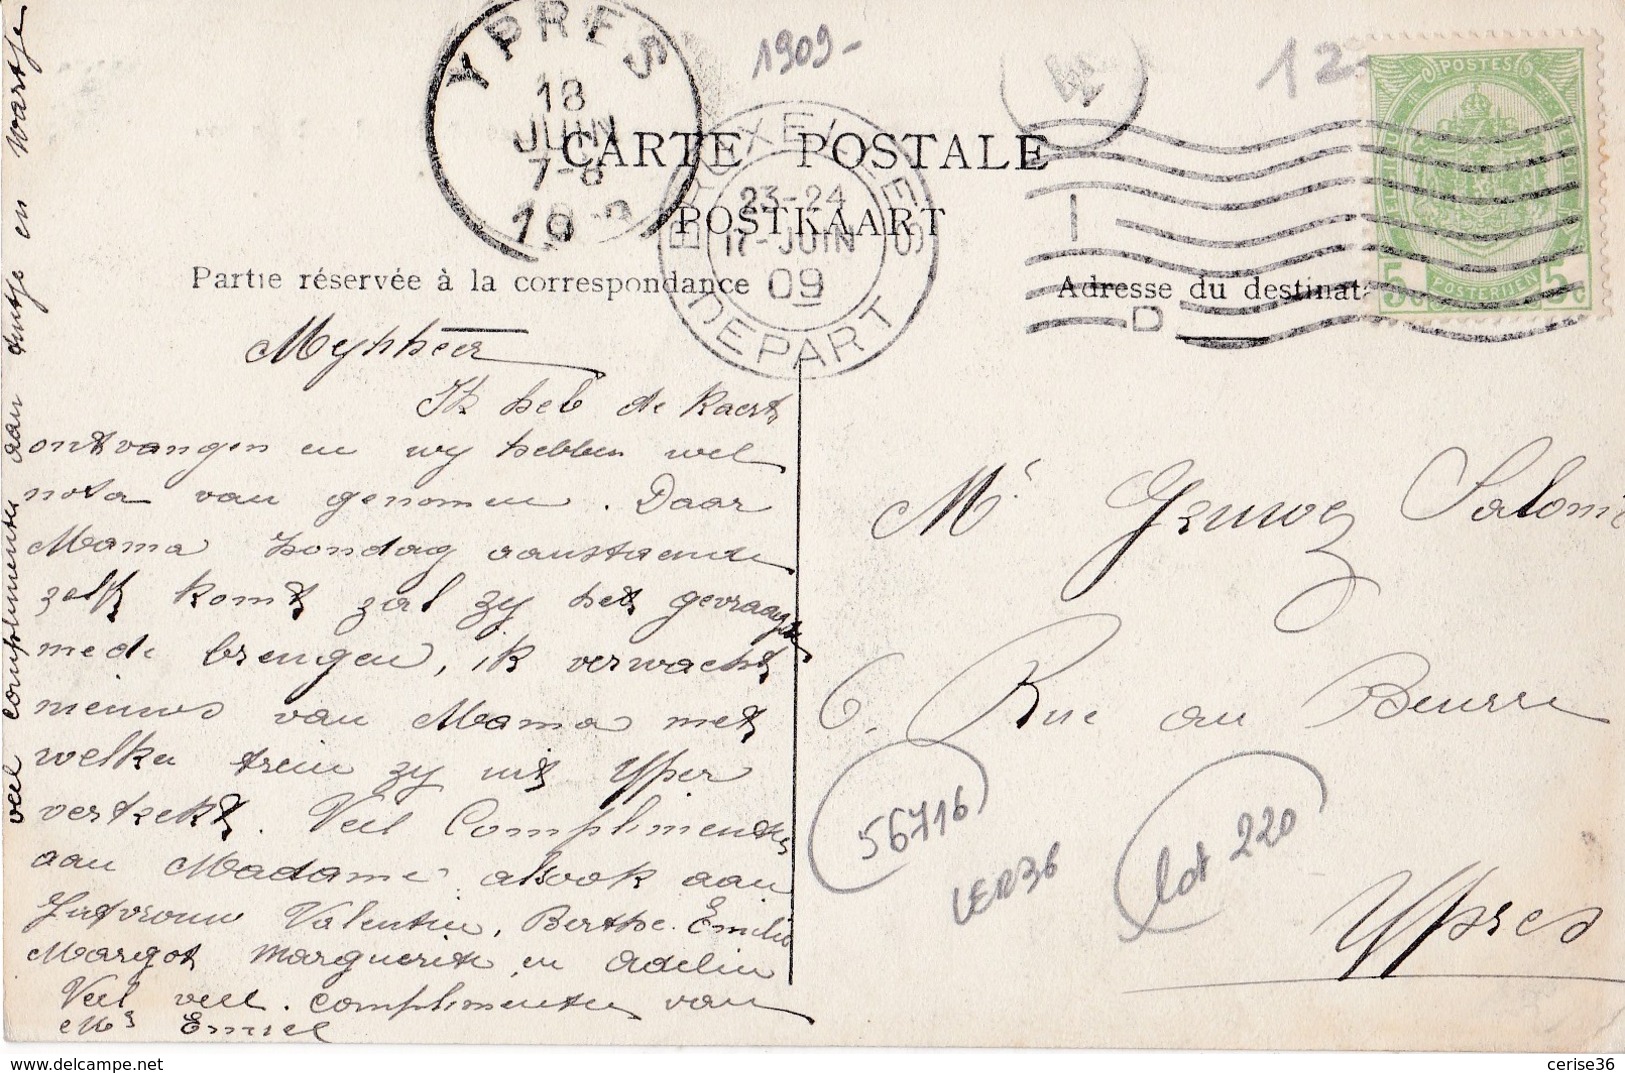 YPRES
18
JUIN
7-8
19
1909-
12
BRUXELLES
23-24
17-JUIN
09
DEPART
POSTES
5c 5c
POSTERIJEN
CARTE POSTALE
POSTKAART
Partie réservée à la correspondance
Adresse du destinata
Mynheer
Ik heb de Kaart
ontvangen en wy hebben wel
nota van genomen. Daar
Mama Zondag aanstaande
zelf komt zal zy het gevraagde
mede brengen, ik verwacht
nieuws van Mama met
welke trein zy uit Yper
vertrekt. Veel Complimenten
aan Madame alsook aan
Juffrouw Valentine, Berthe. Emilie
Margot Marguerite en Adelin
Veel veel complimenten van
Mr Emiel
veel complimenten aan
en
Mr Gruwez Salomé
6. Rue au Beurre
Ypres
56716
VER36
lot 220
delcampe.net
cerise36